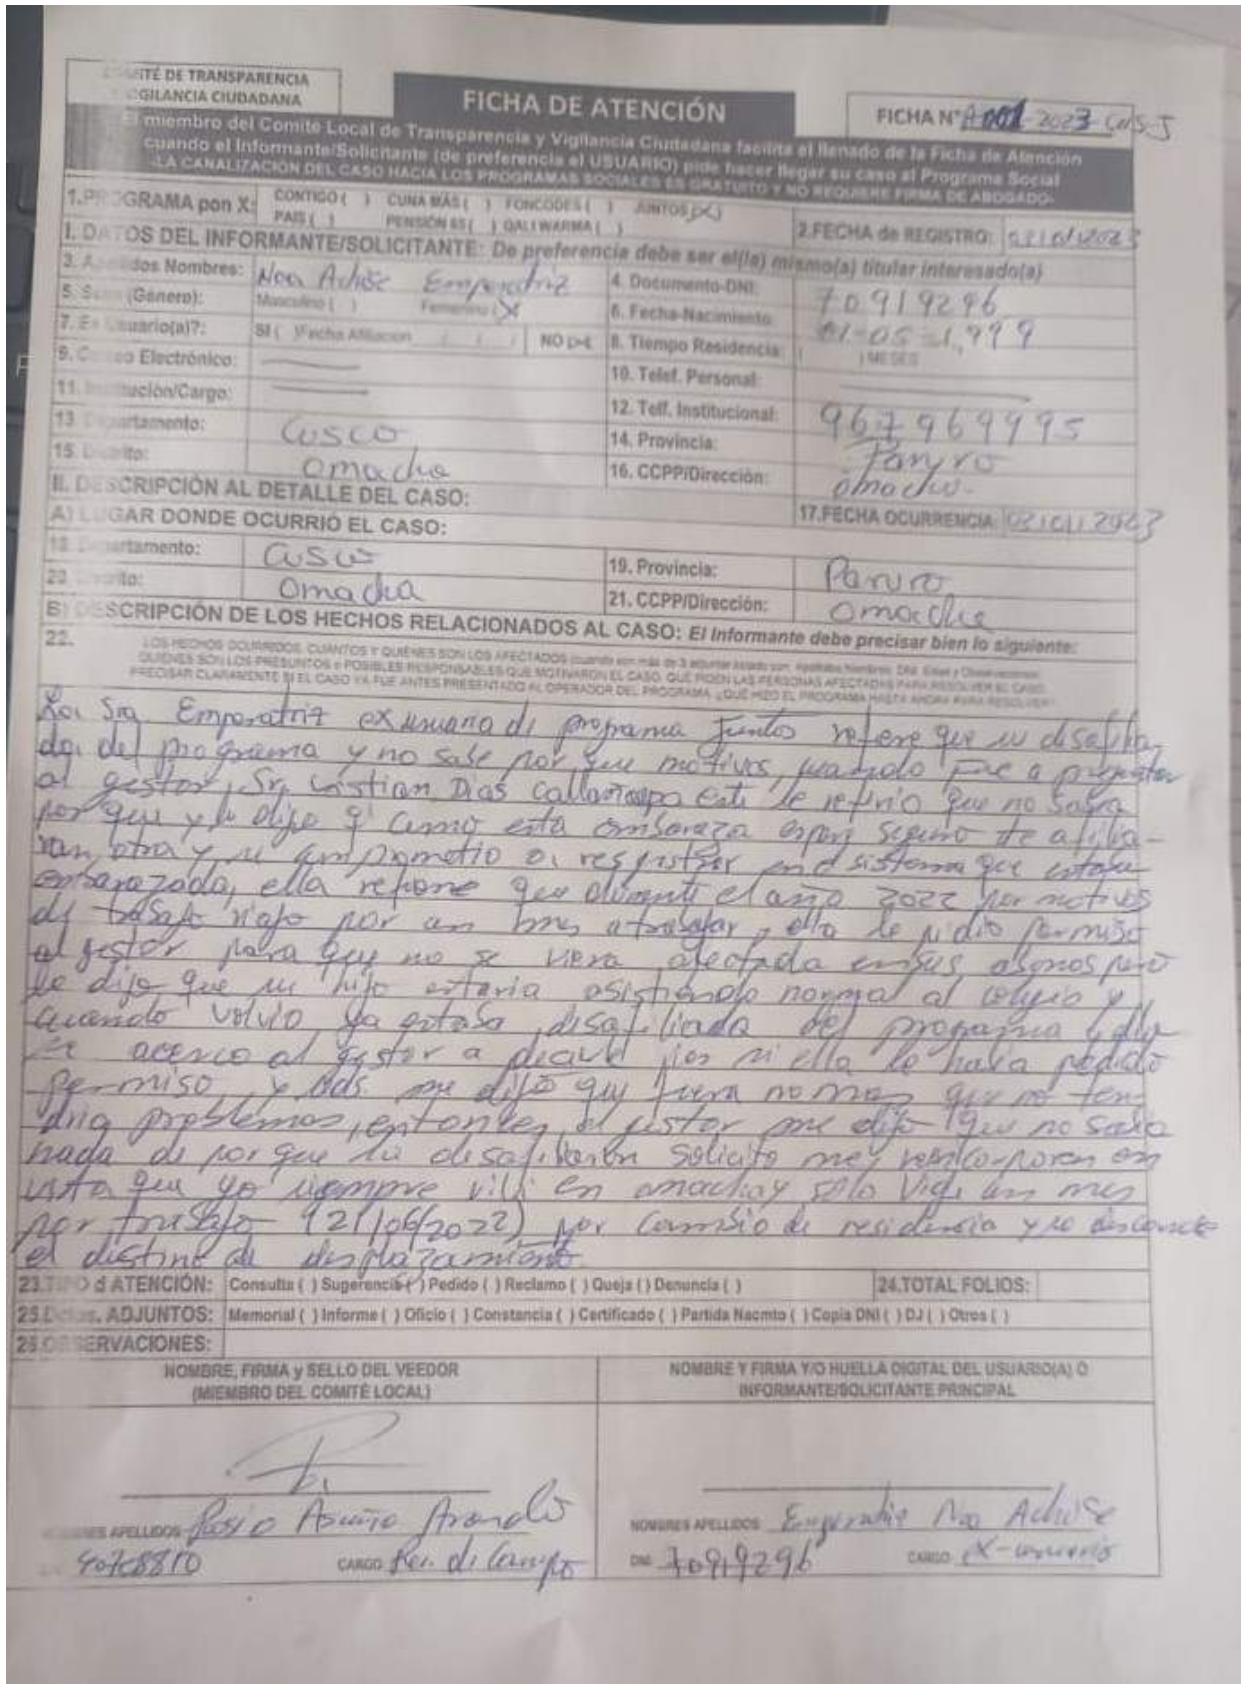 COMITÉ DE TRANSPARENCIA
VIGILANCIA CIUDADANA
FICHA DE ATENCIÓN
FICHA N° A001-2023-CMS-J
El miembro del Comité Local de Transparencia y Vigilancia Ciudadana facilita el llenado de la Ficha de Atención
cuando el Informante/Solicitante (de preferencia el USUARIO) pide hacer llegar su caso al Programa Social
-LA CANALIZACIÓN DEL CASO HACIA LOS PROGRAMAS SOCIALES ES GRATUITO Y NO REQUIERE FIRMA DE ABOGADO-
1.PROGRAMA pon X: CONTIGO ( ) CUNA MÁS ( ) FONCODES ( ) JUNTOS (X)
PAIS ( ) PENSIÓN 65 ( ) QALI WARMA ( )
2.FECHA de REGISTRO: 2023
I. DATOS DEL INFORMANTE/SOLICITANTE: De preferencia debe ser el(la) mismo(a) titular interesado(a)
3. Apellidos Nombres: Noa Achise Emperatriz 4. Documento-DNI: 70919296
5. Sexo (Género): Masculino ( ) Femenino (X) 6. Fecha-Nacimiento: 01-05-1,999
7. Es Usuario(a)?: SI ( ) Fecha Afiliacion / / NO (X) 8. Tiempo Residencia: ( ) MESES
9. Correo Electrónico: 10. Telef. Personal:
11. Institución/Cargo: 12. Telf. Institucional: 967969995
13. Departamento: Cusco 14. Provincia: Paruro
15. Distrito: Omacha 16. CCPP/Dirección: Omacha
II. DESCRIPCIÓN AL DETALLE DEL CASO:
A) LUGAR DONDE OCURRIÓ EL CASO: 17.FECHA OCURRENCIA: 2023
18. Departamento: Cusco 19. Provincia: Paruro
20. Distrito: Omacha 21. CCPP/Dirección: Omacha
B) DESCRIPCIÓN DE LOS HECHOS RELACIONADOS AL CASO: El Informante debe precisar bien lo siguiente:
22. LOS HECHOS OCURRIDOS, CUANTOS Y QUIÉNES SON LOS AFECTADOS
QUIÉNES SON LOS PRESUNTOS o POSIBLES RESPONSABLES QUE MOTIVARON EL CASO, QUÉ PIDEN LAS PERSONAS AFECTADAS PARA RESOLVER EL CASO
PRECISAR CLARAMENTE SI EL CASO YA FUE ANTES PRESENTADO AL OPERADOR DEL PROGRAMA ¿QUÉ HIZO EL PROGRAMA HASTA AHORA PARA RESOLVER?
La Sra Emperatriz exusuaria de programa Juntos refiere que
del programa y no sabe por que motivos, cuando fue a preguntar
al gestor, Sr, Cristian Dias este le refirio que no sabia
por que y le dijo q' como esta embaraza seguro te afilia-
ran otra y se comprometio a registrar en el sistema que estaba
embarazada, ella refiere que durante el año 2022 por motivos
de trabajo viajo por un mes a trabajar, ella le pidio permiso
al gestor para que no se viera afectada en sus abonos pero
le dijo que su hijo estaria asistiendo normal al colegio y
cuando volvio ya estaba desafiliada del programa
se acerco al gestor a por si ella le habia pedido
permiso y me dijo que fuera nomas que no ten-
dria problemas, entonces el gestor me dijo que no sabia
nada de por que la desafiliaron Solicito me reincorporen en
vista que yo siempre vivi en omacha y solo viaje un mes
por trabajo (21/06/2022) por cambio de residencia y se desconoce
el destino de desplazamiento.
23.TIPO d ATENCIÓN: Consulta ( ) Sugerencia ( ) Pedido ( ) Reclamo ( ) Queja ( ) Denuncia ( ) 24.TOTAL FOLIOS:
25.Dctos. ADJUNTOS: Memorial ( ) Informe ( ) Oficio ( ) Constancia ( ) Certificado ( ) Partida Nacmto ( ) Copia DNI ( ) DJ ( ) Otros ( )
26.OBSERVACIONES:
NOMBRE, FIRMA y SELLO DEL VEEDOR
(MIEMBRO DEL COMITÉ LOCAL)
NOMBRE Y FIRMA Y/O HUELLA DIGITAL DEL USUARIO(A) O
INFORMANTE/SOLICITANTE PRINCIPAL
NOMBRES APELLIDOS
CARGO
NOMBRES APELLIDOS Noa Achise
DNI 70919296 CARGO Ex-usuario